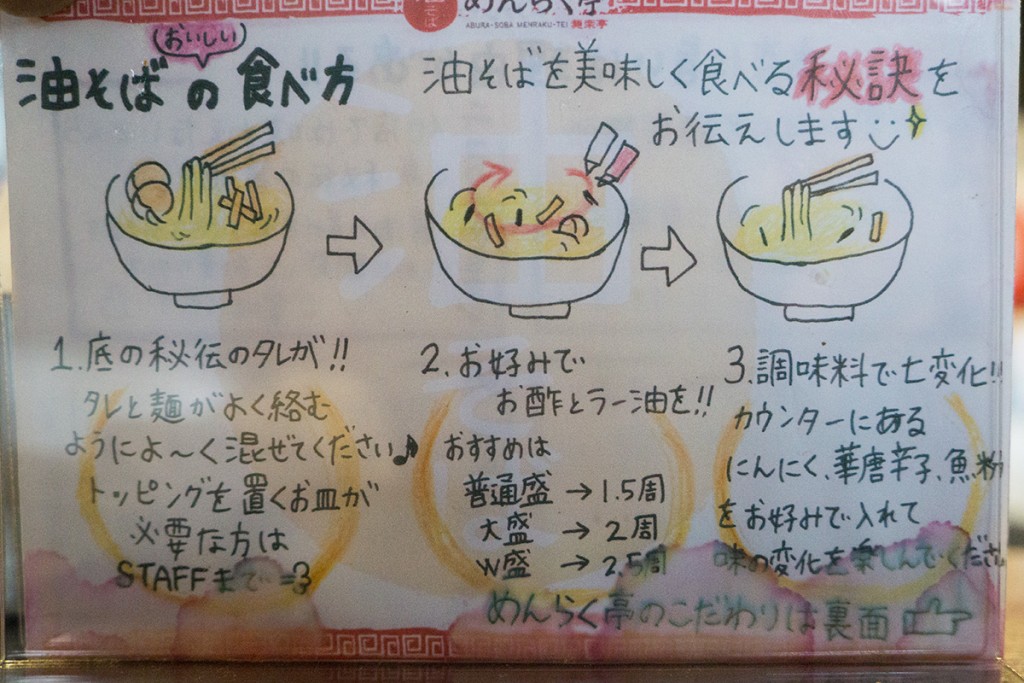 めんらく亭
ABURA-SOBA MENRAKU-TEI 麺楽亭
(おいしい)
油そばの食べ方
油そばを美味しく食べる秘訣を
お伝えします
1.底の秘伝のタレが!!
タレと麺がよく絡む
ようによ〜く混ぜてください♪
トッピングを置くお皿が
必要な方は
STAFFまで =3
2.お好みで
お酢とラー油を!!
おすすめは
普通盛→1.5周
大盛→2周
W盛→2.5周
3.調味料で七変化!!
カウンターにある
にんにく、華唐辛子、魚粉
をお好みで入れて
味の変化を楽しんでくださ
めんらく亭のこだわりは裏面